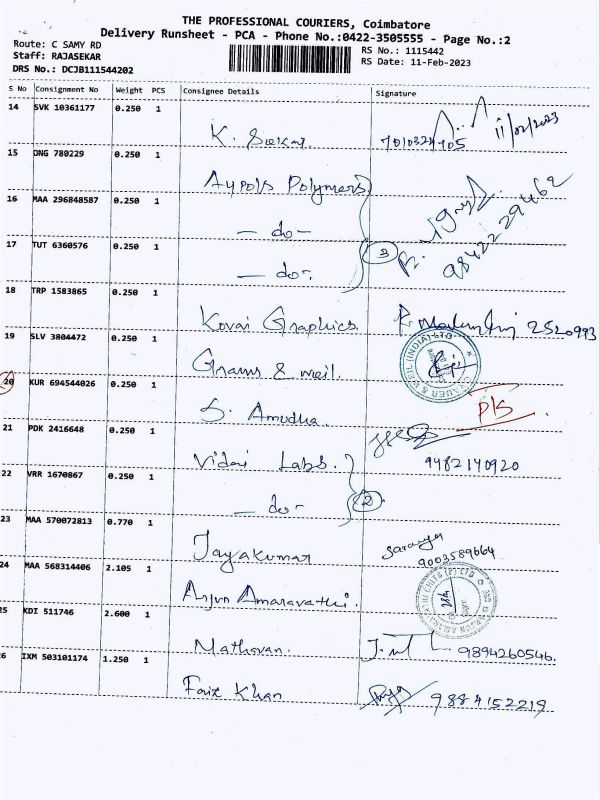 THE PROFESSIONAL COURIERS, Coimbatore
Delivery Runsheet - PCA - Phone No.:0422-3505555 - Page No.:2
Route: C SAMY RD
RS No.: 1115442
Staff: RAJASEKAR
RS Date: 11-Feb-2023
DRS No.: DCJB111544202
S No Consignment No Weight PCS Consignee Details Signature
14 SVK 10361177 0.250 1 K. Sekar 11/02/2023
15 DNG 780229 0.250 1 Aypols Polymers
16 MAA 296848587 0.250 1 - do - 9842229462
17 TUT 6360576 0.250 1 - do - 3
18 TRP 1583865 0.250 1 Kovai Graphics. 2520993
19 SLV 3804472 0.250 1 Grams & weil.
20 KUR 694544026 0.250 1 S. Amudha. P/S
21 PDK 2416648 0.250 1 Vidai Labs. 9482140920
22 VRR 1670867 0.250 1 - do - 2
23 MAA 570072813 0.770 1 Jayakumar Saranya 9003589664
24 MAA 568314406 2.105 1 Arjun Amaravathi.
25 KDI 511746 2.600 1 Mathavan. 9894260546.
6 IXM 503101174 1.250 1 Faiz Khan 9884152219